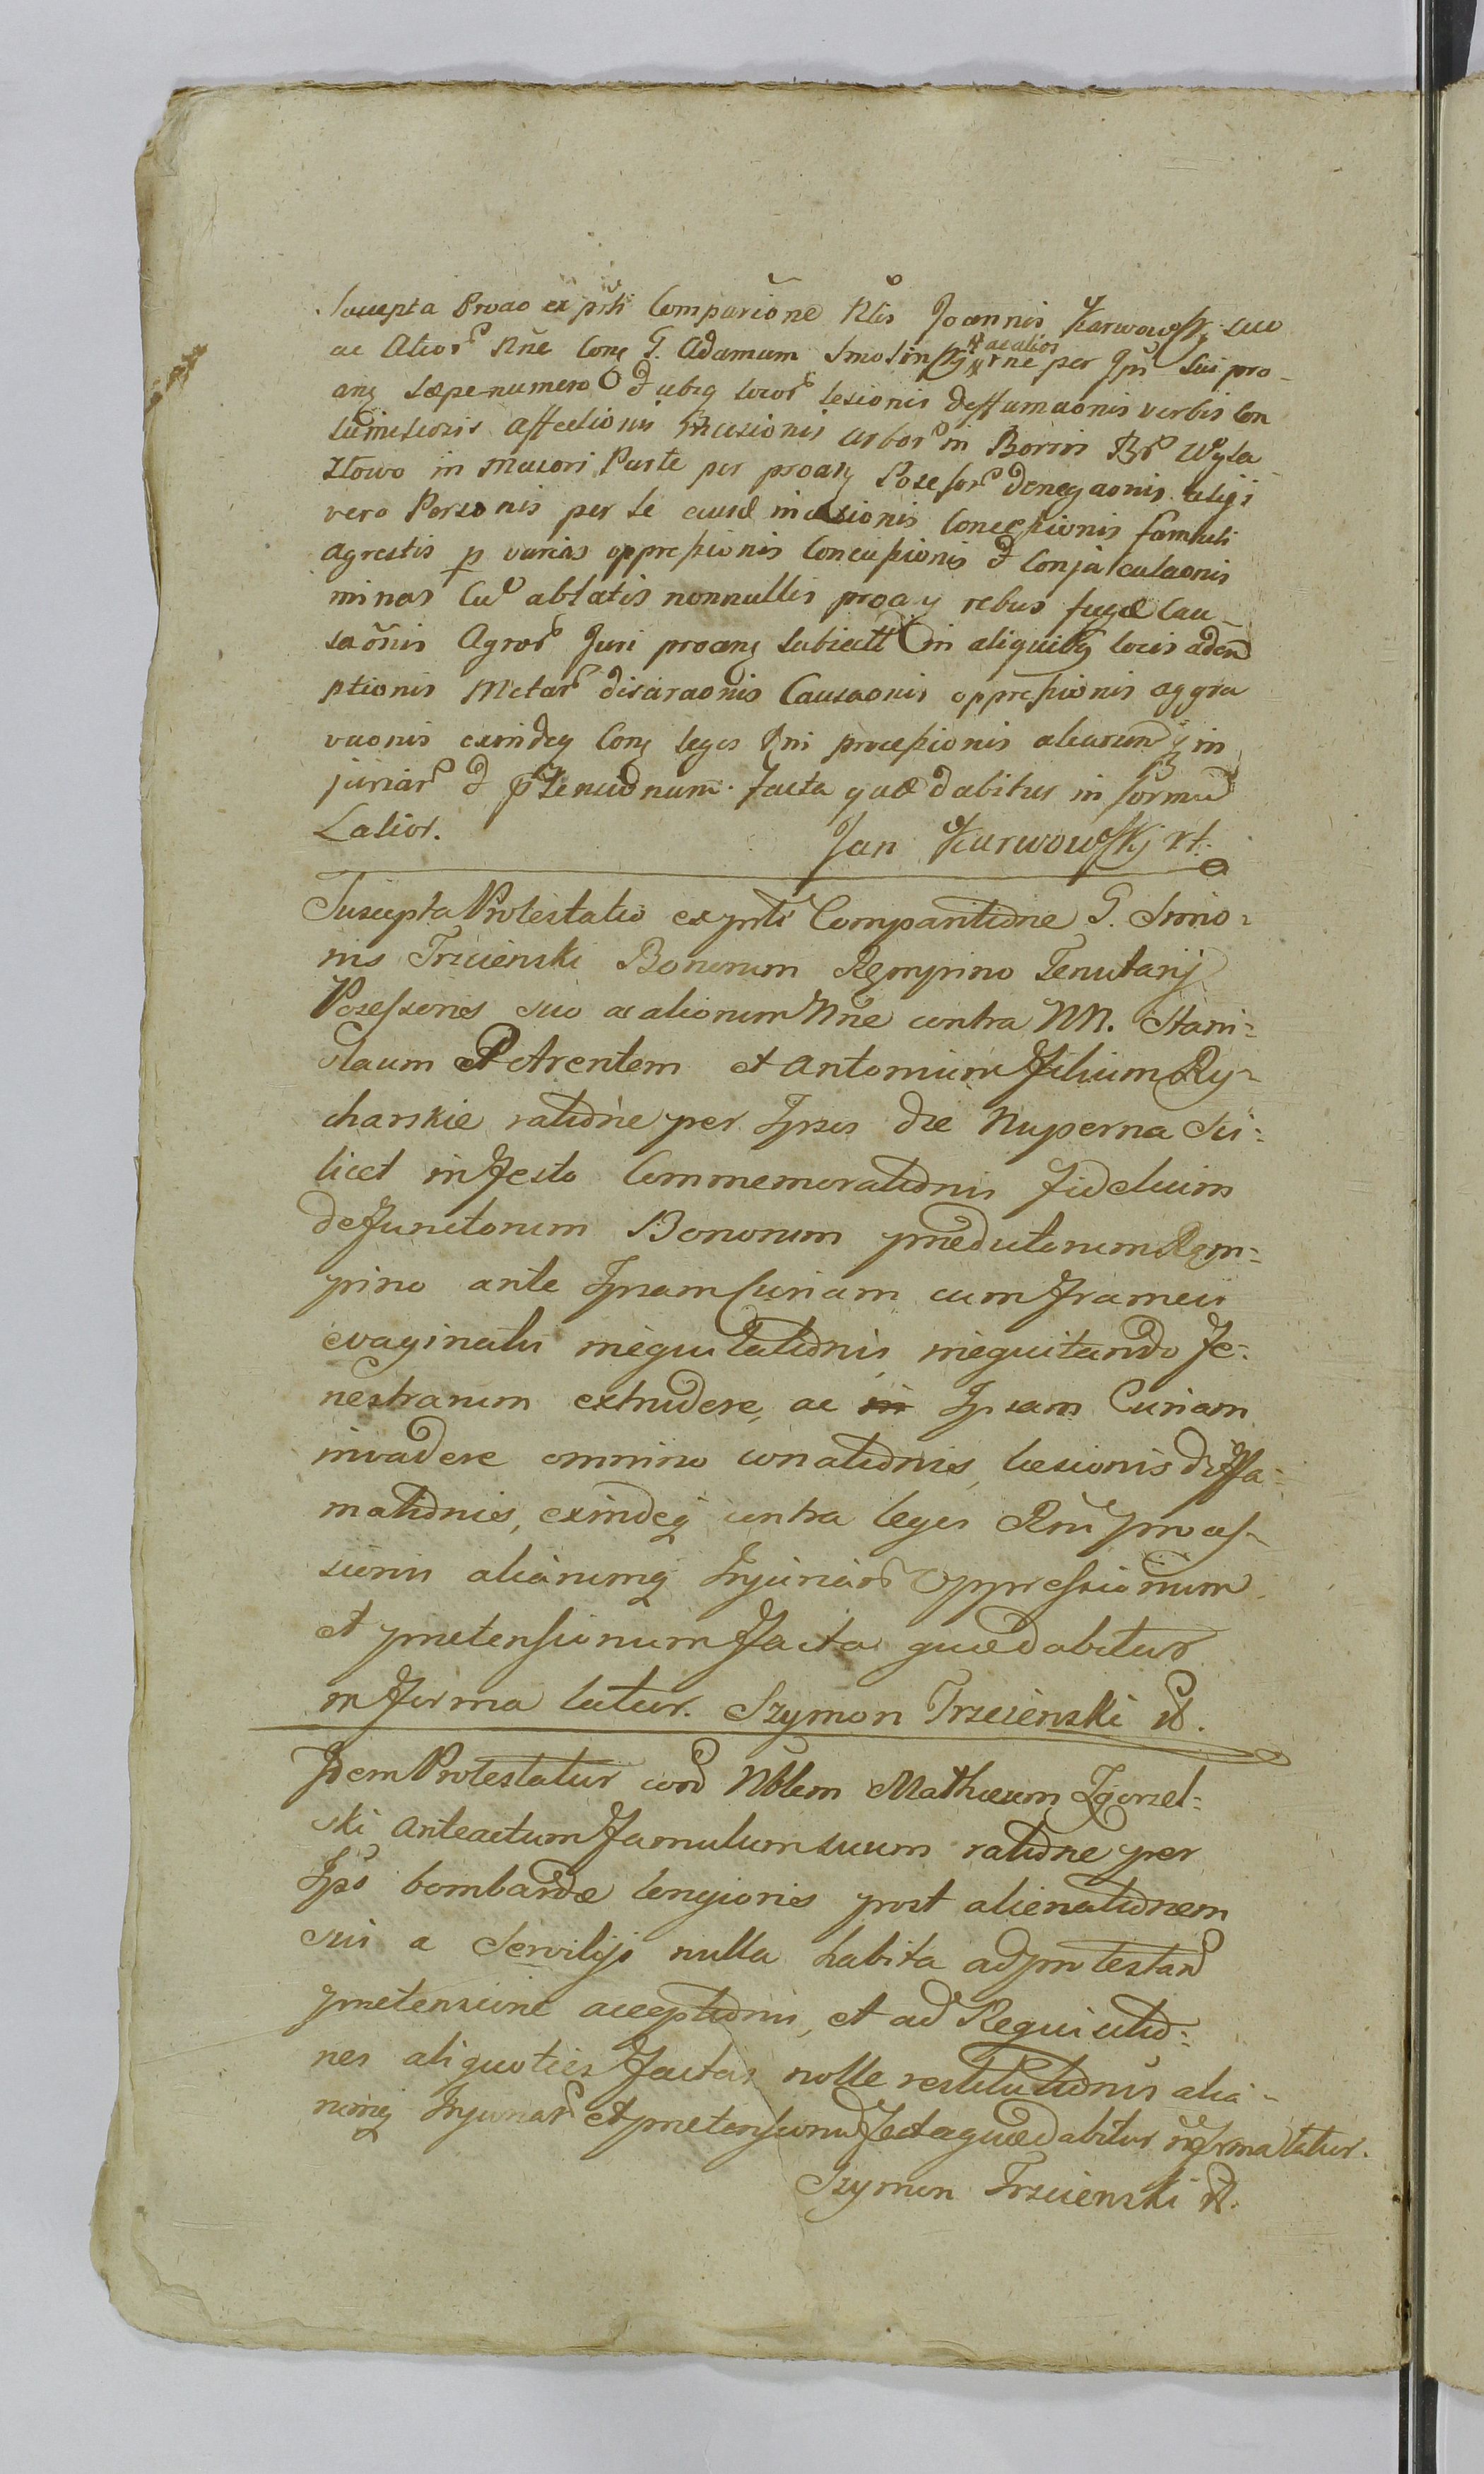 Suscepta Proao ex prti Comparitione Nlis Joannis Karwowskj suo
ac Alior Nne Con G. Adamum Smolinskj ac alios rne per Ips sui pro
anz sæpenumero & ubiq locor lesionis deffamaonis verbis Con
tumeliosis affectionis
 in Maiori Parte per proanz Posessor denegaonis aliis
vero Personis per se
agrestis p varias oppressionis Concussionis & Conjaculaonis
minas Cu ablatis nonnullis proaz rebus fugæ Cau
saonis Agror Juri proanz subiectt in aliquibq locis adem
ptionis Metar Causaonis oppressionis aggra
vaonis exindeq Con leges Rni processionis aliarumq in
juriar & ptensionum. facta quæ dabitur in forma
Latior. Jan Karwowskj rt.
Suscepta Protestatio ex prnti Comparitione G. Simo=
nis Trzcienski Bonorum Rempino Tenutarij
Possessoris suo ac aliorum Nne contra NN. Stani=
slaum Parentem et Antonium Filium Ry=
charskie ratione per Ipsos die Nuperna Sci=
licet in Festo Commemorationis Fidelium
defunctorum Bonorum prædictorum Rem=
pino ante Ipsam Curiam cum Frameis
evaginatis inequitationis, inequitando Fe=
nestrarum extrudere, ac in Ipsam Curiam
invadere omnino conationis, læsionis diffa=
mationis, exindeq contra leges Rni proces=
sionis aliarumq Injuriar Oppressionum
et prætensionum Facta quæ dabitur
in Forma latior. Szymon Trzcienski rt.
Idem Protestatur con Nblem Mathæum Zgorzel=
ski anteactum Famulum suum ratione per
Ips bombardæ longioris post alienationem
sui a Servitijs nulla habita ad protestan
prætensione acceptionis, et ad Requisitio=
nes aliquoties Factas nolle restitutionis alia=
rumq Injuriar et prætensionu Facta quæ dabitur in Forma latior.
Szymon Trzcienski rt.